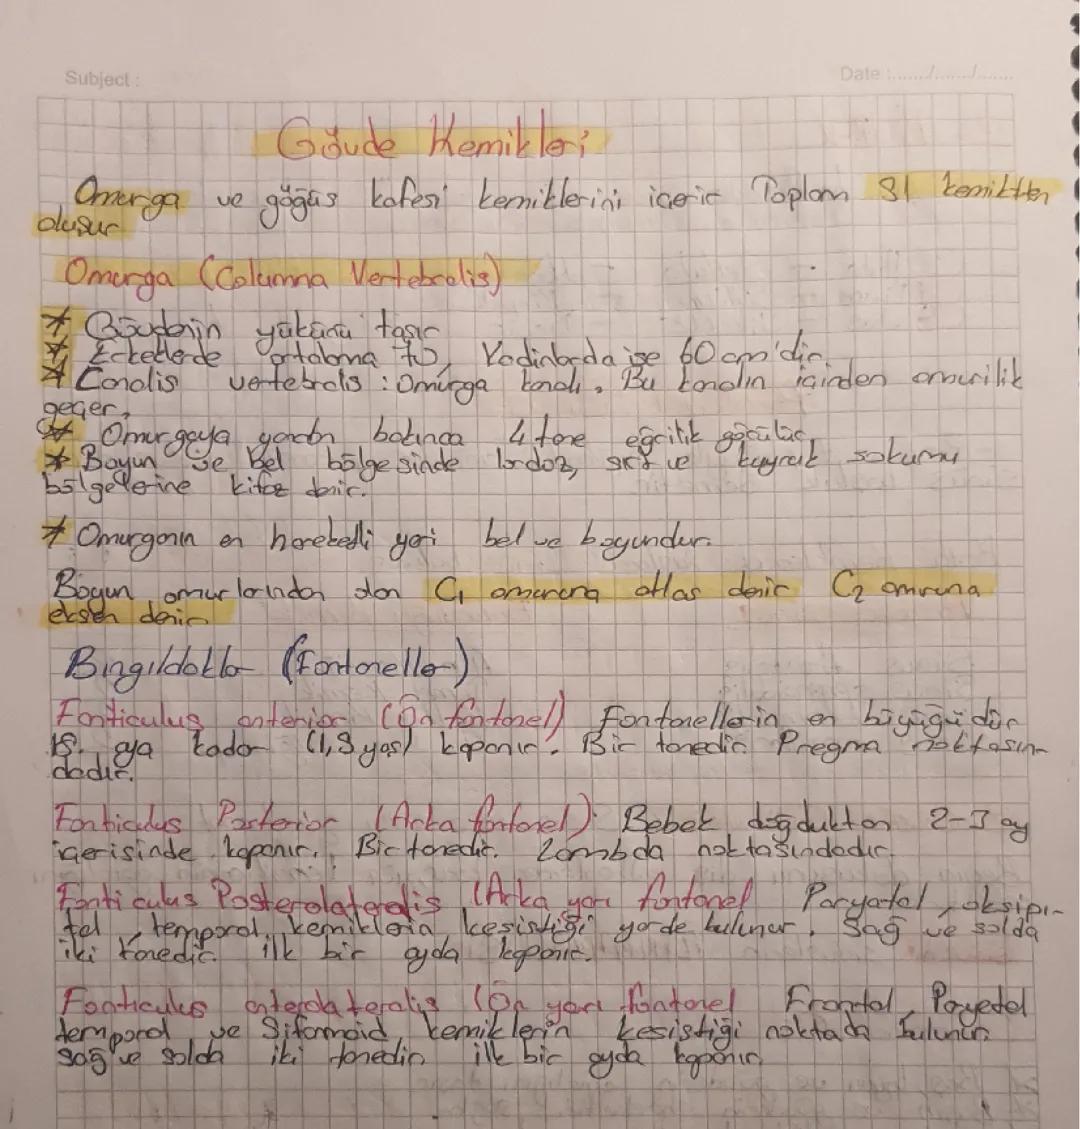 Subject :
Date :....../....../......
Gövde Kemikleri
Omurga ve göğüs kafesi kemiklerini içerir Toplam 51 kemikten
oluşur
Omurga (Columna Vertebralis)
* Gövdenin yükünü taşır
* Erkeklerde ortalama 70, Kadınlarda ise 60 cm'dir.
* Canalis vertebralis : Omurga kanalı, Bu kanalın içinden omurilik
geçer,
* Omurgaya yandan bakınca 4 tane eğrilik görülür,
* Boyun ve bel bölgesinde lordoz, sırt ve kuyruk sokumu
bölgelerine kifoz denir.
* Omurganın en hareketli yeri bel ve boyundur.
Boyun omurlarından olan C1 omuruna atlas denir C2 omruna
eksen denir
Bıngıldaklar (Fontanella)
Fonticulus anterior (Ön fontanel) Fontanellerin en büyüğüdür
18. aya kadar (1,5 yaş) kapanır. Bir tanedir. Pregma noktasın-
dadır.
Fonticulus Posterior (Arka fontanel) Bebek doğduktan 2-3 ay
içerisinde kapanır. Bir tanedir. Lambda noktasındadır.
Fonticulus Posterolateralis (Arka yan fontanel Paryatal, oksipi-
tal, temporal, kemiklerin kesiştiği yerde bulunur. Sağ ve solda
iki tanedir. ilk bir ayda kapanır.
Fonticulus anterolateralis (Ön yan fontanel Frontal, Payedal
temporal ve Sifornoid kemiklerin kesiştiği noktada bulunur.
Sağ ve solda iki tanedir. ilk bir ayda kapanır